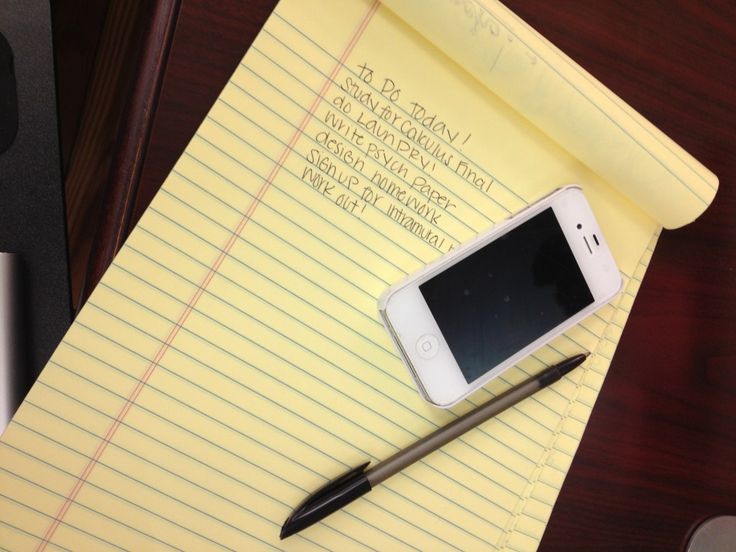 to Do Today!
Study for Calculus Final
do LaunDRY!
write psych paper
design homework
sign up for intramural
work out!